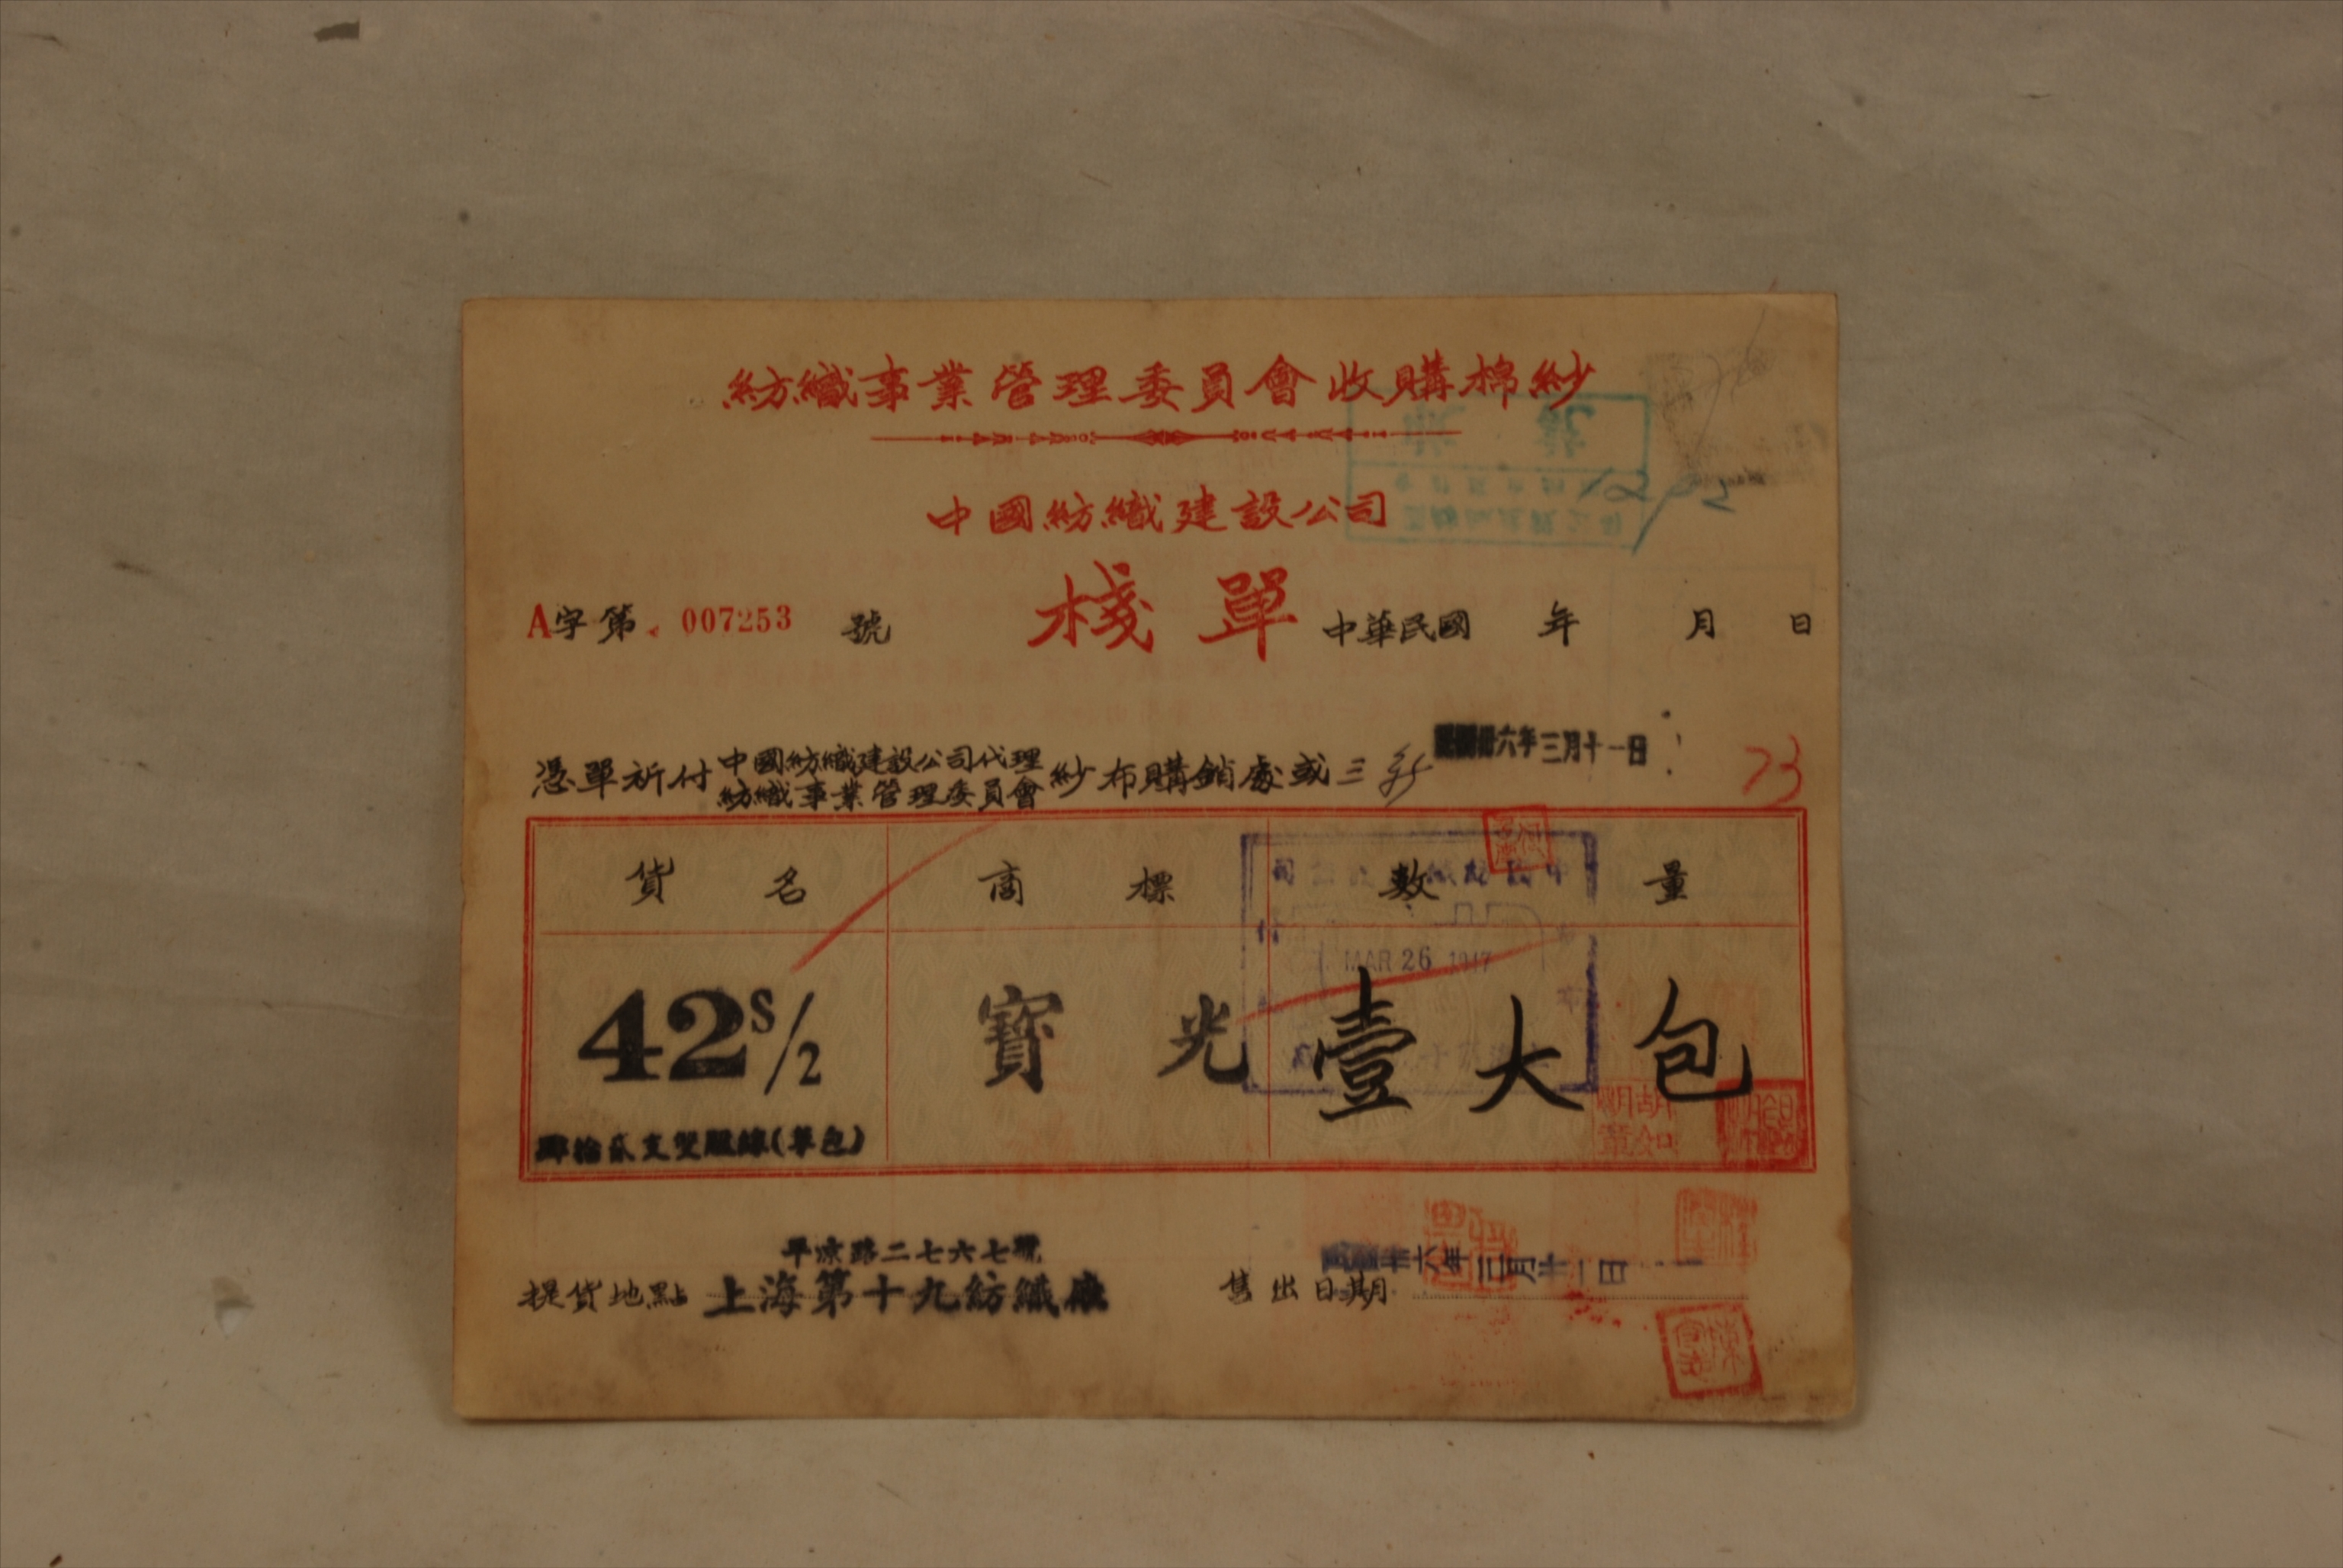 紡織事業管理委員會收購棉紗
中國紡織建設公司
棧單
A字第 007253 號
中華民國 年 月 日
民國卅六年三月十一日
憑單祈付中國紡織建設公司代理
紡織事業管理委員會紗布購銷處或三新
73
貨名 商標 數量
MAR 26 1947
42S/2 寶光 壹大包
肆拾貳支雙股線(單包)
胡如明章
平凉路二七六七號
提貨地點 上海第十九紡織廠
售出日期 民國卅六年三月廿一日